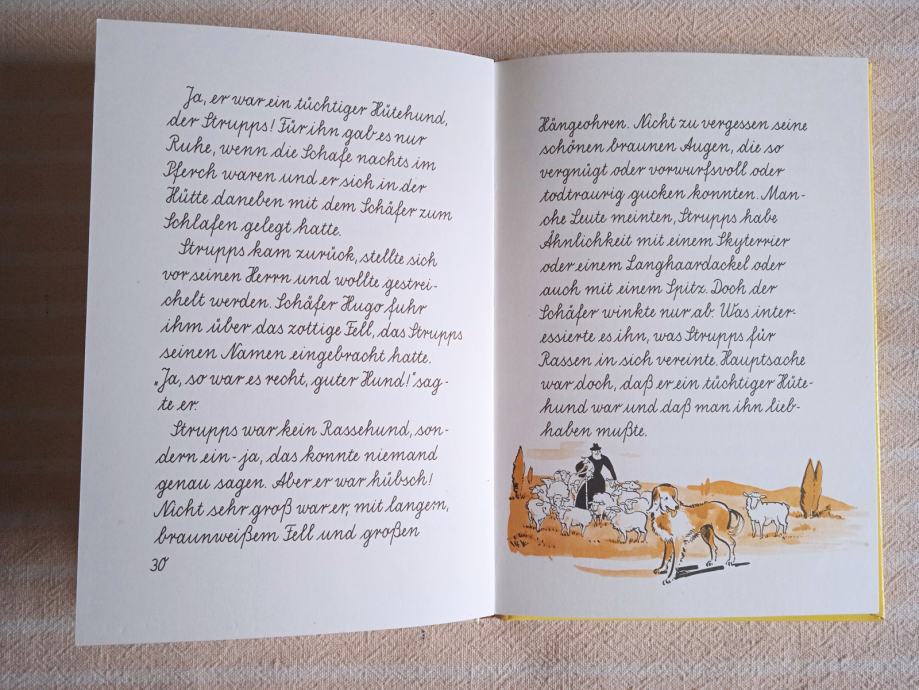 Ja, er war ein tüchtiger Hütehund,
der Strupps! Für ihn gab es nur
Ruhe, wenn die Schafe nachts im
Pferch waren und er sich in der
Hütte daneben mit dem Schäfer zum
Schlafen gelegt hatte.
Strupps kam zurück, stellte sich
vor seinen Herrn und wollte gestrei-
chelt werden. Schäfer Hugo fuhr
ihm über das zottige Fell, das Strupps
seinen Namen eingebracht hatte.
„Ja, so war es recht, guter Hund!" sag-
te er.
Strupps war kein Rassehund, son-
dern ein - ja, das konnte niemand
genau sagen. Aber er war hübsch!
Nicht sehr groß war er, mit langem,
braunweißem Fell und großen
30
Hängeohren. Nicht zu vergessen seine
schönen braunen Augen, die so
vergnügt oder vorwurfsvoll oder
todtraurig gucken konnten. Man-
che Leute meinten, Strupps habe
Ähnlichkeit mit einem Skyterrier
oder einem Langhaardackel oder
auch mit einem Spitz. Doch der
Schäfer winkte nur ab. Was inter-
essierte es ihn, was Strupps für
Rassen in sich vereinte. Hauptsache
war doch, daß er ein tüchtiger Hüte-
hund war und daß man ihn lieb-
haben mußte.